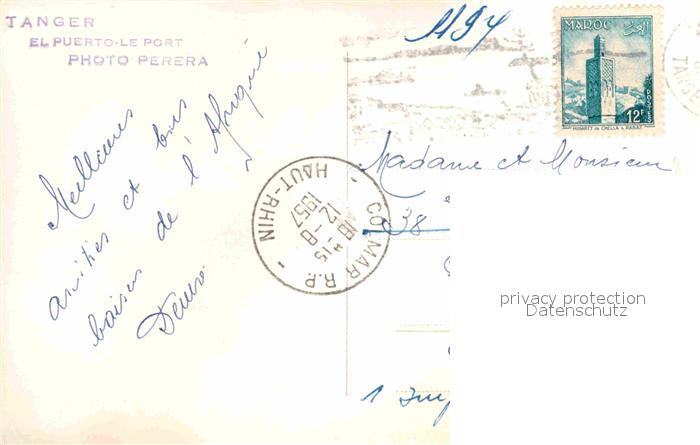 TANGER
EL PUERTO-LE PORT
PHOTO PERERA
Meilleures
amitiés et bons
baisers de l'Afrique
Denise
1194
MAROC
POSTES
12F
MINARET DE CHELLA A RABAT
TANGER
COLMAR R.P.
HAUT-RHIN
15
12-8
1957
Madame et Monsieur
38
1
privacy protection
Datenschutz